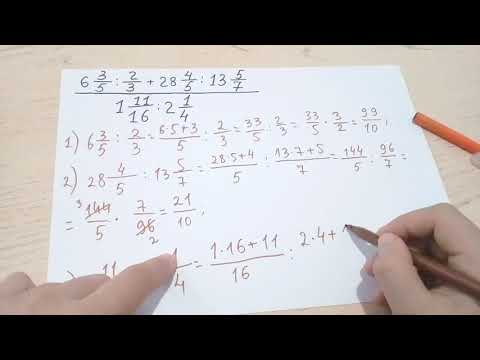 6 3/5 : 2/3 + 28 4/5 : 13 5/7
1 11/16 : 2 1/4
1) 6 3/5 : 2/3 = 6·5+3/5 : 2/3 = 33/5 : 2/3 = 33/5 · 3/2 = 99/10 ,
2) 28 4/5 : 13 5/7 = 28·5+4/5 : 13·7+5/7 = 144/5 : 96/7 =
= 3 144/5 · 7/96 2 = 21/10 ,
) 11 1/4 = 1·16+11/16 : 2·4+